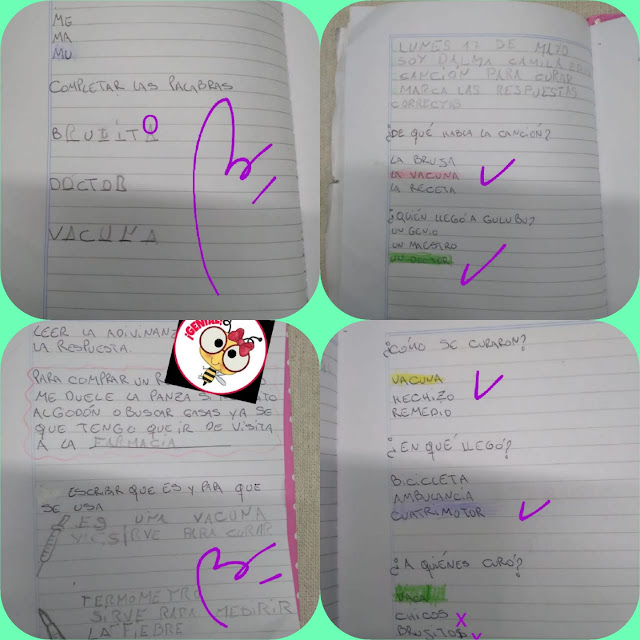 ME
MA
MU
COMPLETAR LAS PALABRAS
BRUJITA
O
DOCTOR
VACUNA
LUNES 17 DE MAYO
SOY DALMA CAMILA
CANCIÓN PARA CURAR
MARCA LAS RESPUESTAS
CORRECTAS
¿DE QUÉ HABLA LA CANCIÓN?
LA BRUJA
LA VACUNA
LA RECETA
¿QUIÉN LLEGÓ A GULUBÚ?
UN GENIO
UN MAESTRO
UN DOCTOR
LEER LA ADIVINANZ
LA RESPUESTA.
¡GENIAL!
PARA COMPRAR UN
ME DUELE LA PANZA
ALGODÓN O BUSCAR GASAS YA SE
QUE TENGO QUE IR DE VISITA
A LA FARMACIA
ESCRIBIR QUE ES Y PARA QUE
SE USA
ES UNA VACUNA
Y SIRVE PARA CURAR
TERMOMETRO
SIRVE PARA MEDIRIR
LA FIEBRE
¿CÓMO SE CURARON?
VACUNA
HECHIZO
REMEDIO
¿EN QUÉ LLEGÓ?
BICICLETA
AMBULANCIA
CUATRIMOTOR
¿A QUIÉNES CURÓ?
VACA
CHICOS
BRUJITOS